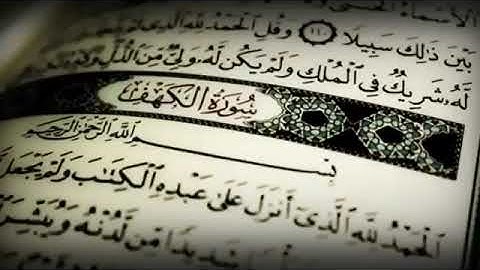 الأسماء الحسنى
بين ذلك سبيلا ١١٠ وقل الحمد لله الذي
له شريك في الملك ولم يكن له ولي من الذل وكبره
سورة الكهف
بسم الله الرحمن الرحيم
الحمد لله الذي أنزل على عبده الكتب ولم يجعل
شديدا من لدنه ويبشر